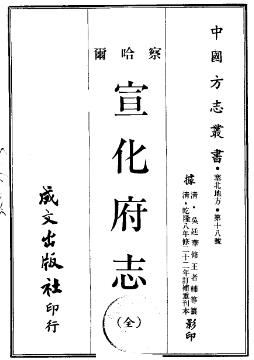 中國方志叢書・塞北地方・第十八號
據
清・吳廷華修王者輔等纂
清・乾隆八年修二十二年訂補重刊本
影印
察哈爾
宣化府志
(全)
成文出版社印行